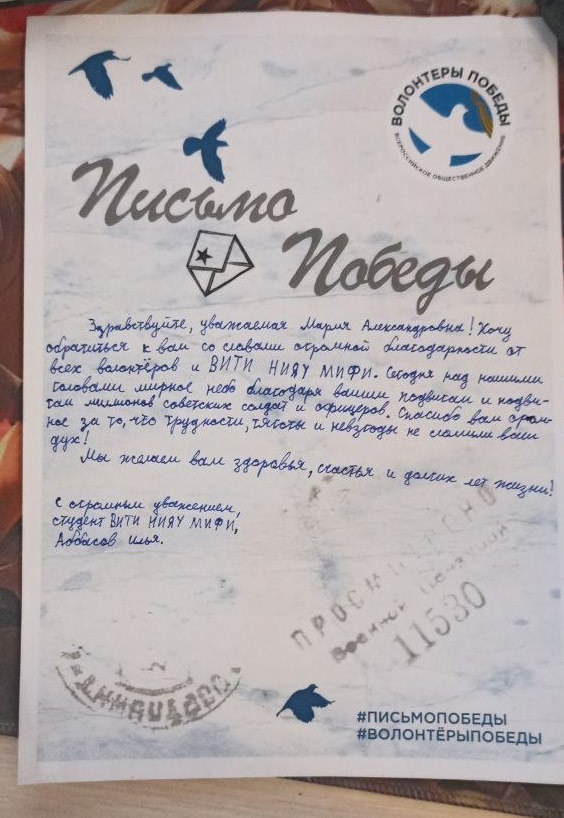 ВОЛОНТЕРЫ ПОБЕДЫ
ВСЕРОССИЙСКОЕ ОБЩЕСТВЕННОЕ ДВИЖЕНИЕ
Письмо
Победы
Здравствуйте, уважаемая Мария Александровна! Хочу
обратиться к вам со словами огромной благодарности от
всех волонтёров и ВИТИ НИЯУ МИФИ. Сегодня над нашими
головами мирное небо благодаря вашим подвигам и подви-
гам миллионов советских солдат и офицеров. Спасибо вам огром-
ное за то, что трудности, тяготы и невзгоды не сломили ваш
дух!
Мы желаем вам здоровья, счастья и долгих лет жизни!
С огромным уважением,
студент ВИТИ НИЯУ МИФИ,
Аббасов Илья.
ПРОСМОТРЕНО
Военной Цензурой
11530
#ПИСЬМОПОБЕДЫ
#ВОЛОНТЁРЫПОБЕДЫ